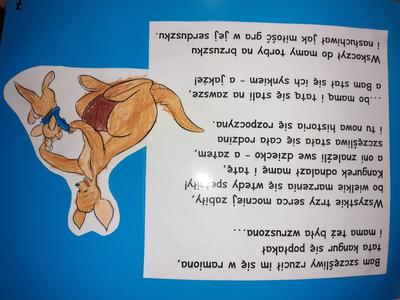 Bam szczęśliwy rzucił im się w ramiona,
tata kangur się popłakał
i mama też była wzruszona...
Wszystkie trzy serca mocniej zabiły,
bo wielkie marzenia się wtedy spełniły!
Kangurek odnalazł mamę i tatę,
a oni znaleźli swe dziecko – a zatem,
szczęśliwa stała się cała rodzina
i tu nowa historia się rozpoczyna.
...bo mamą i tatą się stali na zawsze,
a Bam stał się ich synkiem – a jakże!
Wskoczył do mamy torby na brzuszku
i nasłuchiwał jak miłość gra w jej serduszku.